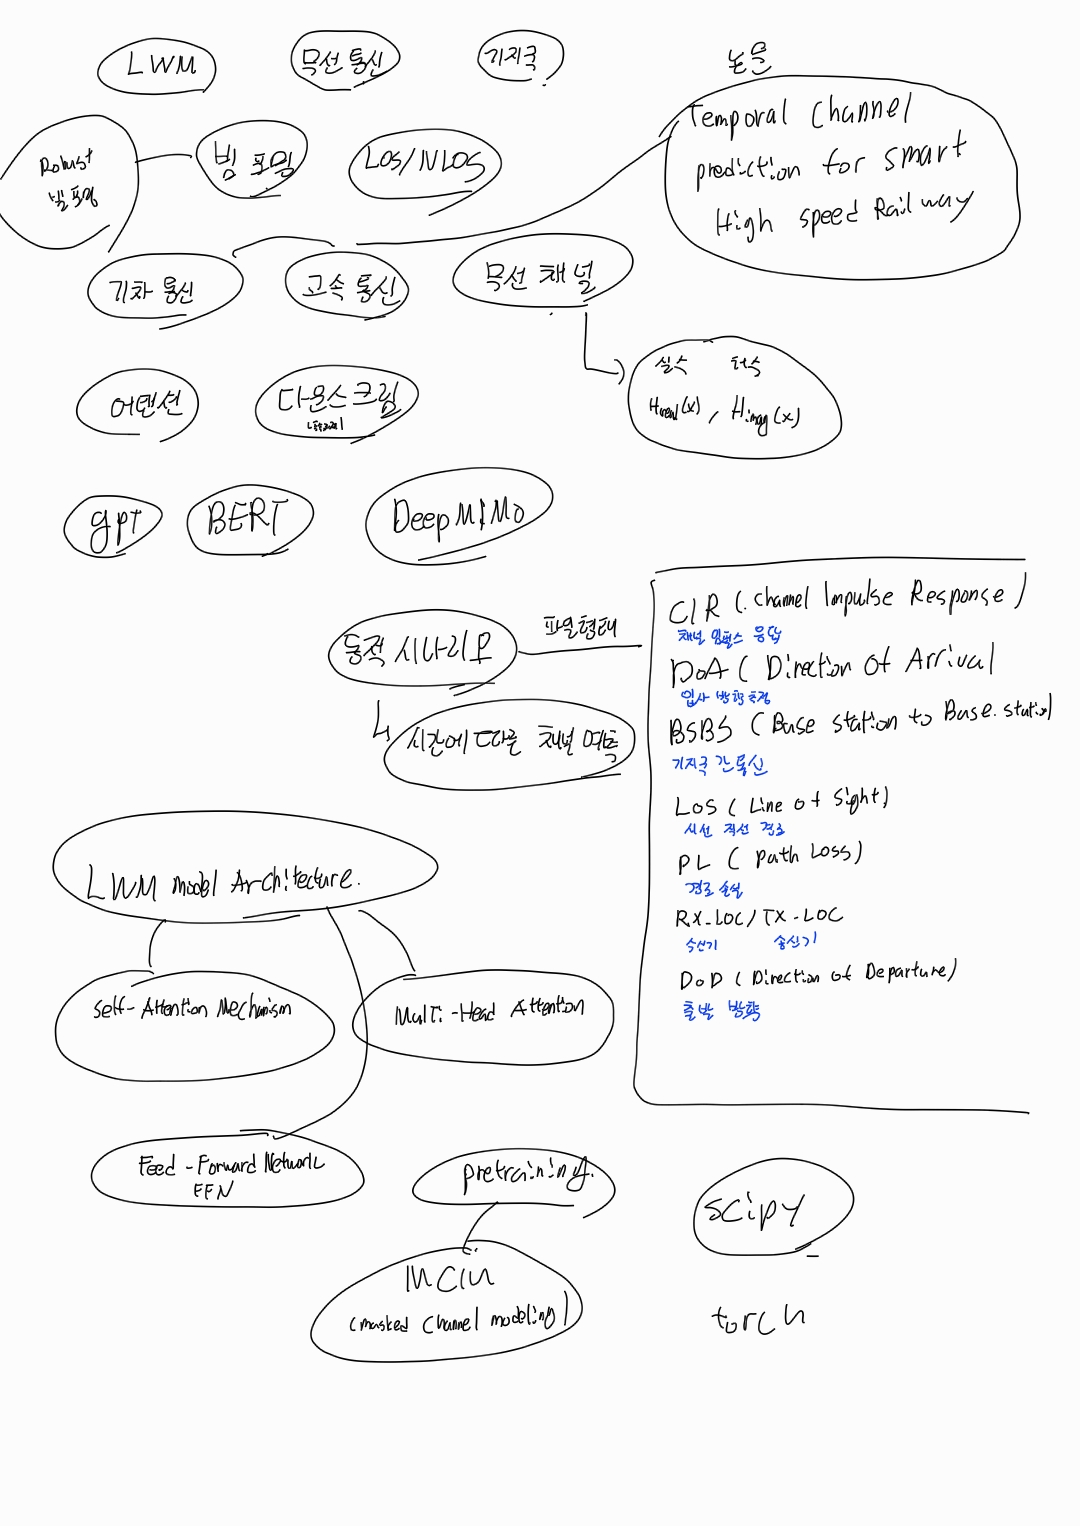 LWM
무선 통신
기지국
논문
Temporal Channel
prediction for smart
High speed Railway
Robust
빔포밍
빔 포밍
LOS/NLOS
기차 통신
고속 통신
무선 채널
실수 허수
Hreal(x), Himag(x)
어텐션
다운스크림
gpt
BERT
DeepMIMO
동적 시나리오
파일형태
시간에 따른 채널 예측
CIR (Channel Impulse Response)
채널 임펄스 응답
DoA ( Direction Of Arrival
입사 방향 측정
BSBS (Base station to Base station)
기지국 간 통신
LoS ( Line of sight)
시선 직선 경로
PL ( path Loss)
경로 손실
RX-LOC/TX-LOC
수신기 송신기
DoD (Direction of Departure)
출발 방향
LWM model Architecture.
Self-Attention Mechanism
Multi-Head Attention
Feed-Forward Network
FFN
pretraining.
MCM
(masked channel modeling)
scipy
torch